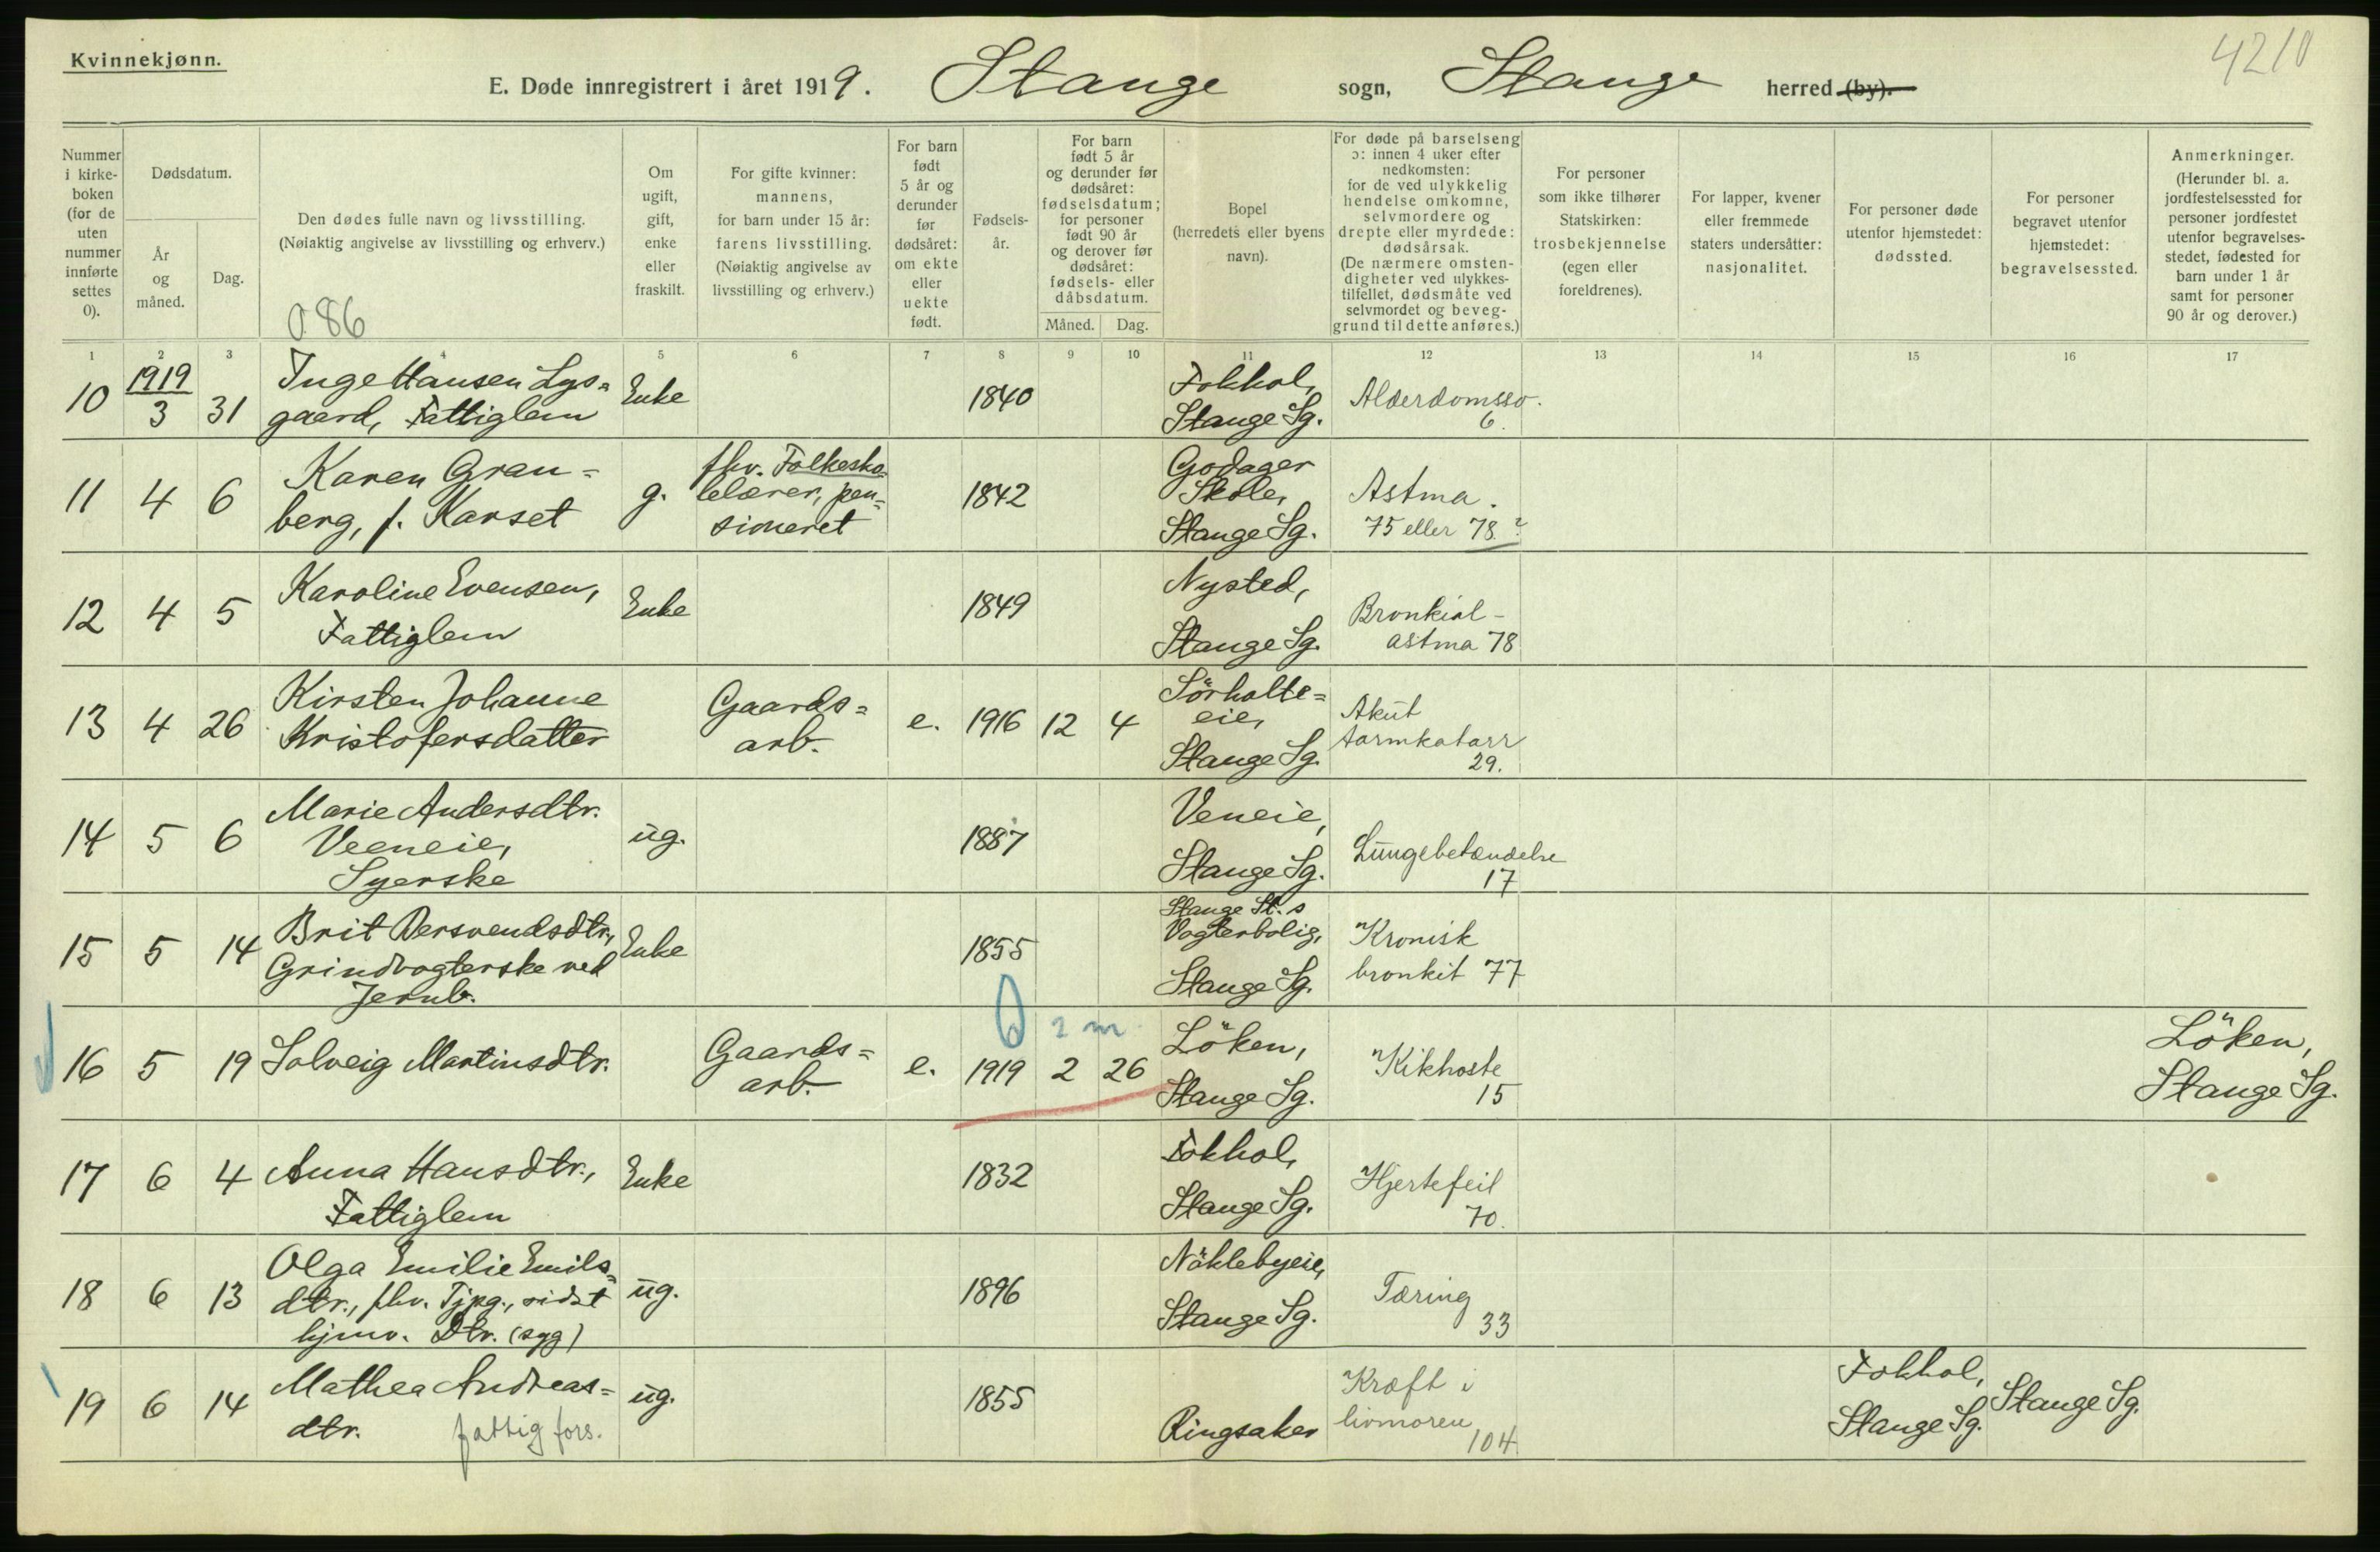 Kvinnekjønn.
4210
E. Døde innregistrert i året 1919. Stange sogn, Stange herred (by).
Nummer i kirkeboken (for de uten nummer innførte settes 0).
Dødsdatum.
År og måned.
Dag.
Den dødes fulle navn og livsstilling.
(Nøiaktig angivelse av livsstilling og erhverv.)
0.86
Om ugift, gift, enke eller fraskilt.
For gifte kvinner: mannens, for barn under 15 år: farens livsstilling. (Nøiaktig angivelse av livsstilling og erhverv.)
For barn født 5 år og derunder før dødsåret: om ekte eller uekte født.
Fødselsår.
For barn født 5 år og derunder før dødsåret: fødselsdatum; for personer født 90 år og derover før dødsåret: fødsels- eller dåbsdatum.
Måned. Dag.
Bopel (herredets eller byens navn).
For døde på barselseng ɔ: innen 4 uker efter nedkomsten: for de ved ulykkelig hendelse omkomne, selvmordere og drepte eller myrdede: dødsårsak. (De nærmere omstendigheter ved ulykkestilfellet, dødsmåte ved selvmordet og beveggrund til dette anføres.)
For personer som ikke tilhører Statskirken: trosbekjennelse (egen eller foreldrenes).
For lapper, kvener eller fremmede staters undersåtter: nasjonalitet.
For personer døde utenfor hjemstedet: dødssted.
For personer begravet utenfor hjemstedet: begravelsessted.
Anmerkninger. (Herunder bl. a. jordfestelsessted for personer jordfestet utenfor begravelsesstedet, fødested for barn under 1 år samt for personer 90 år og derover.)
1 2 3 4 5 6 7 8 9 10 11 12 13 14 15 16 17
10 1919 3 31 Inge Hansen Lys=
gaard, Fattiglem Enke 1840 Fokhol, Stange Sg. Alderdomssv. 6.
11 4 6 Karen Gran=
berg, f. Karset g. fhv. Folkesko=
lelærer, pen=
sioneret 1842 Godager Skole, Stange Sg. Astma. 75 eller 78?
12 4 5 Karoline Evensen,
Fattiglem Enke 1849 Nysted, Stange Sg. Bronkial-
astma 78
13 4 26 Kirsten Johanne
Kristofersdatter Gaards=
arb. e. 1916 12 4 Sörholte=
eie, Stange Sg. Akut
tarmkatarr 29.
14 5 6 Marie Andersdtr.
Veeneie,
Syerske ug. 1887 Veneie, Stange Sg. Lungebetændelse 17
15 5 14 Brit Persvendsdtr,
Grindvogterske ved
Jernb. Enke 1855 Stange St.s
Vogterbolig, Stange Sg. Kronisk
bronkit 77
2 m
16 5 19 Solveig Martinsdtr. Gaards=
arb. e. 1919 2 26 Löken, Stange Sg. Kikhoste 15 Löken,
Stange Sg.
17 6 4 Anna Hansdtr.,
Fattiglem Enke 1832 Fokhol, Stange Sg. Hjertefeil 70.
18 6 13 Olga Emilie Emils=
dtr., fhv. Tjpg., sidst
hjmv. Dtr. (syg) ug. 1896 Nöklebyeie, Stange Sg. Tæring 33
19 6 14 Mathea Andreas=
dtr. fattig fors. ug. 1855 Ringsaker Kræft i
livmoren 104. Fokhol,
Stange Sg. Stange Sg.